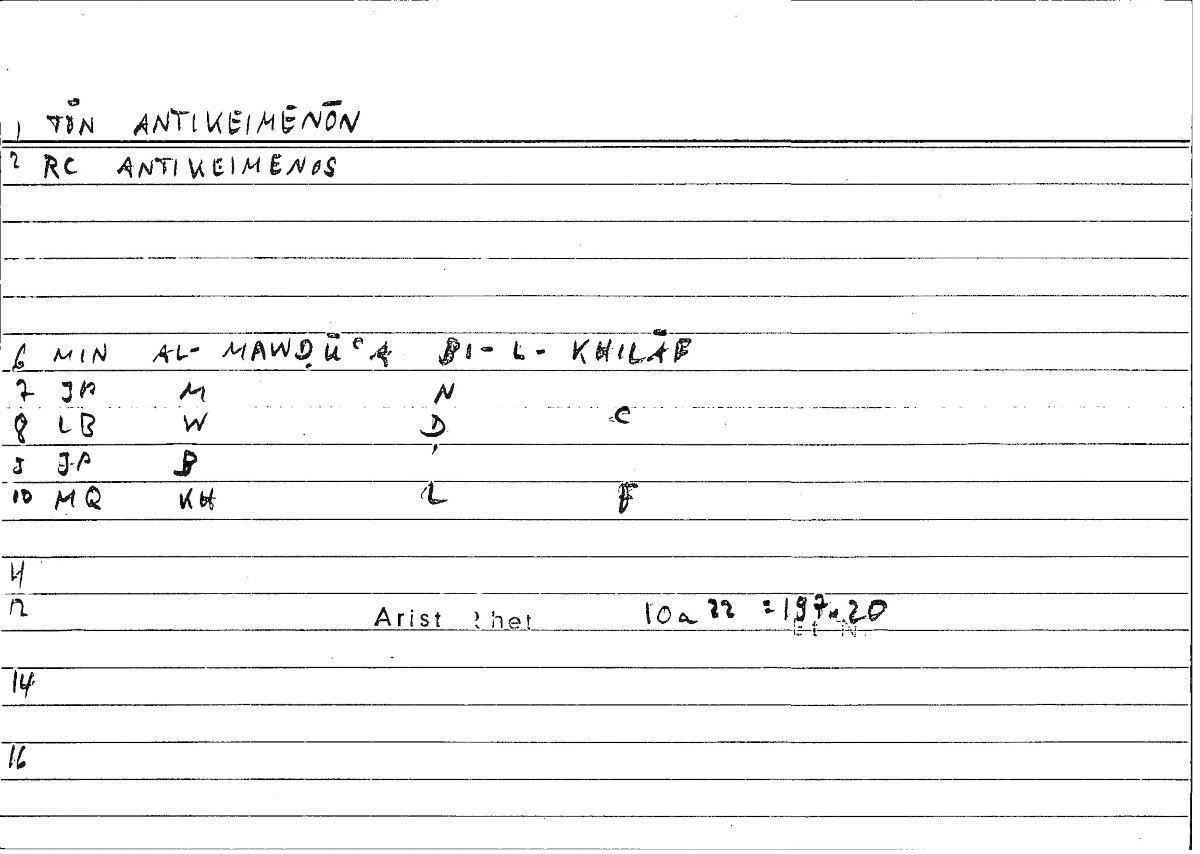 1 TŌN ANTIKEIMENŌN
2 RC ANTIKEIMENOS
6 MIN AL- MAWḌŪʿA BI-L-KHILĀF
7 JP M N
8 LB W Ḍ C
9 JP B
10 MQ KH L F
11
12 Arist Rhet 10a 22 = 197.20
14
16